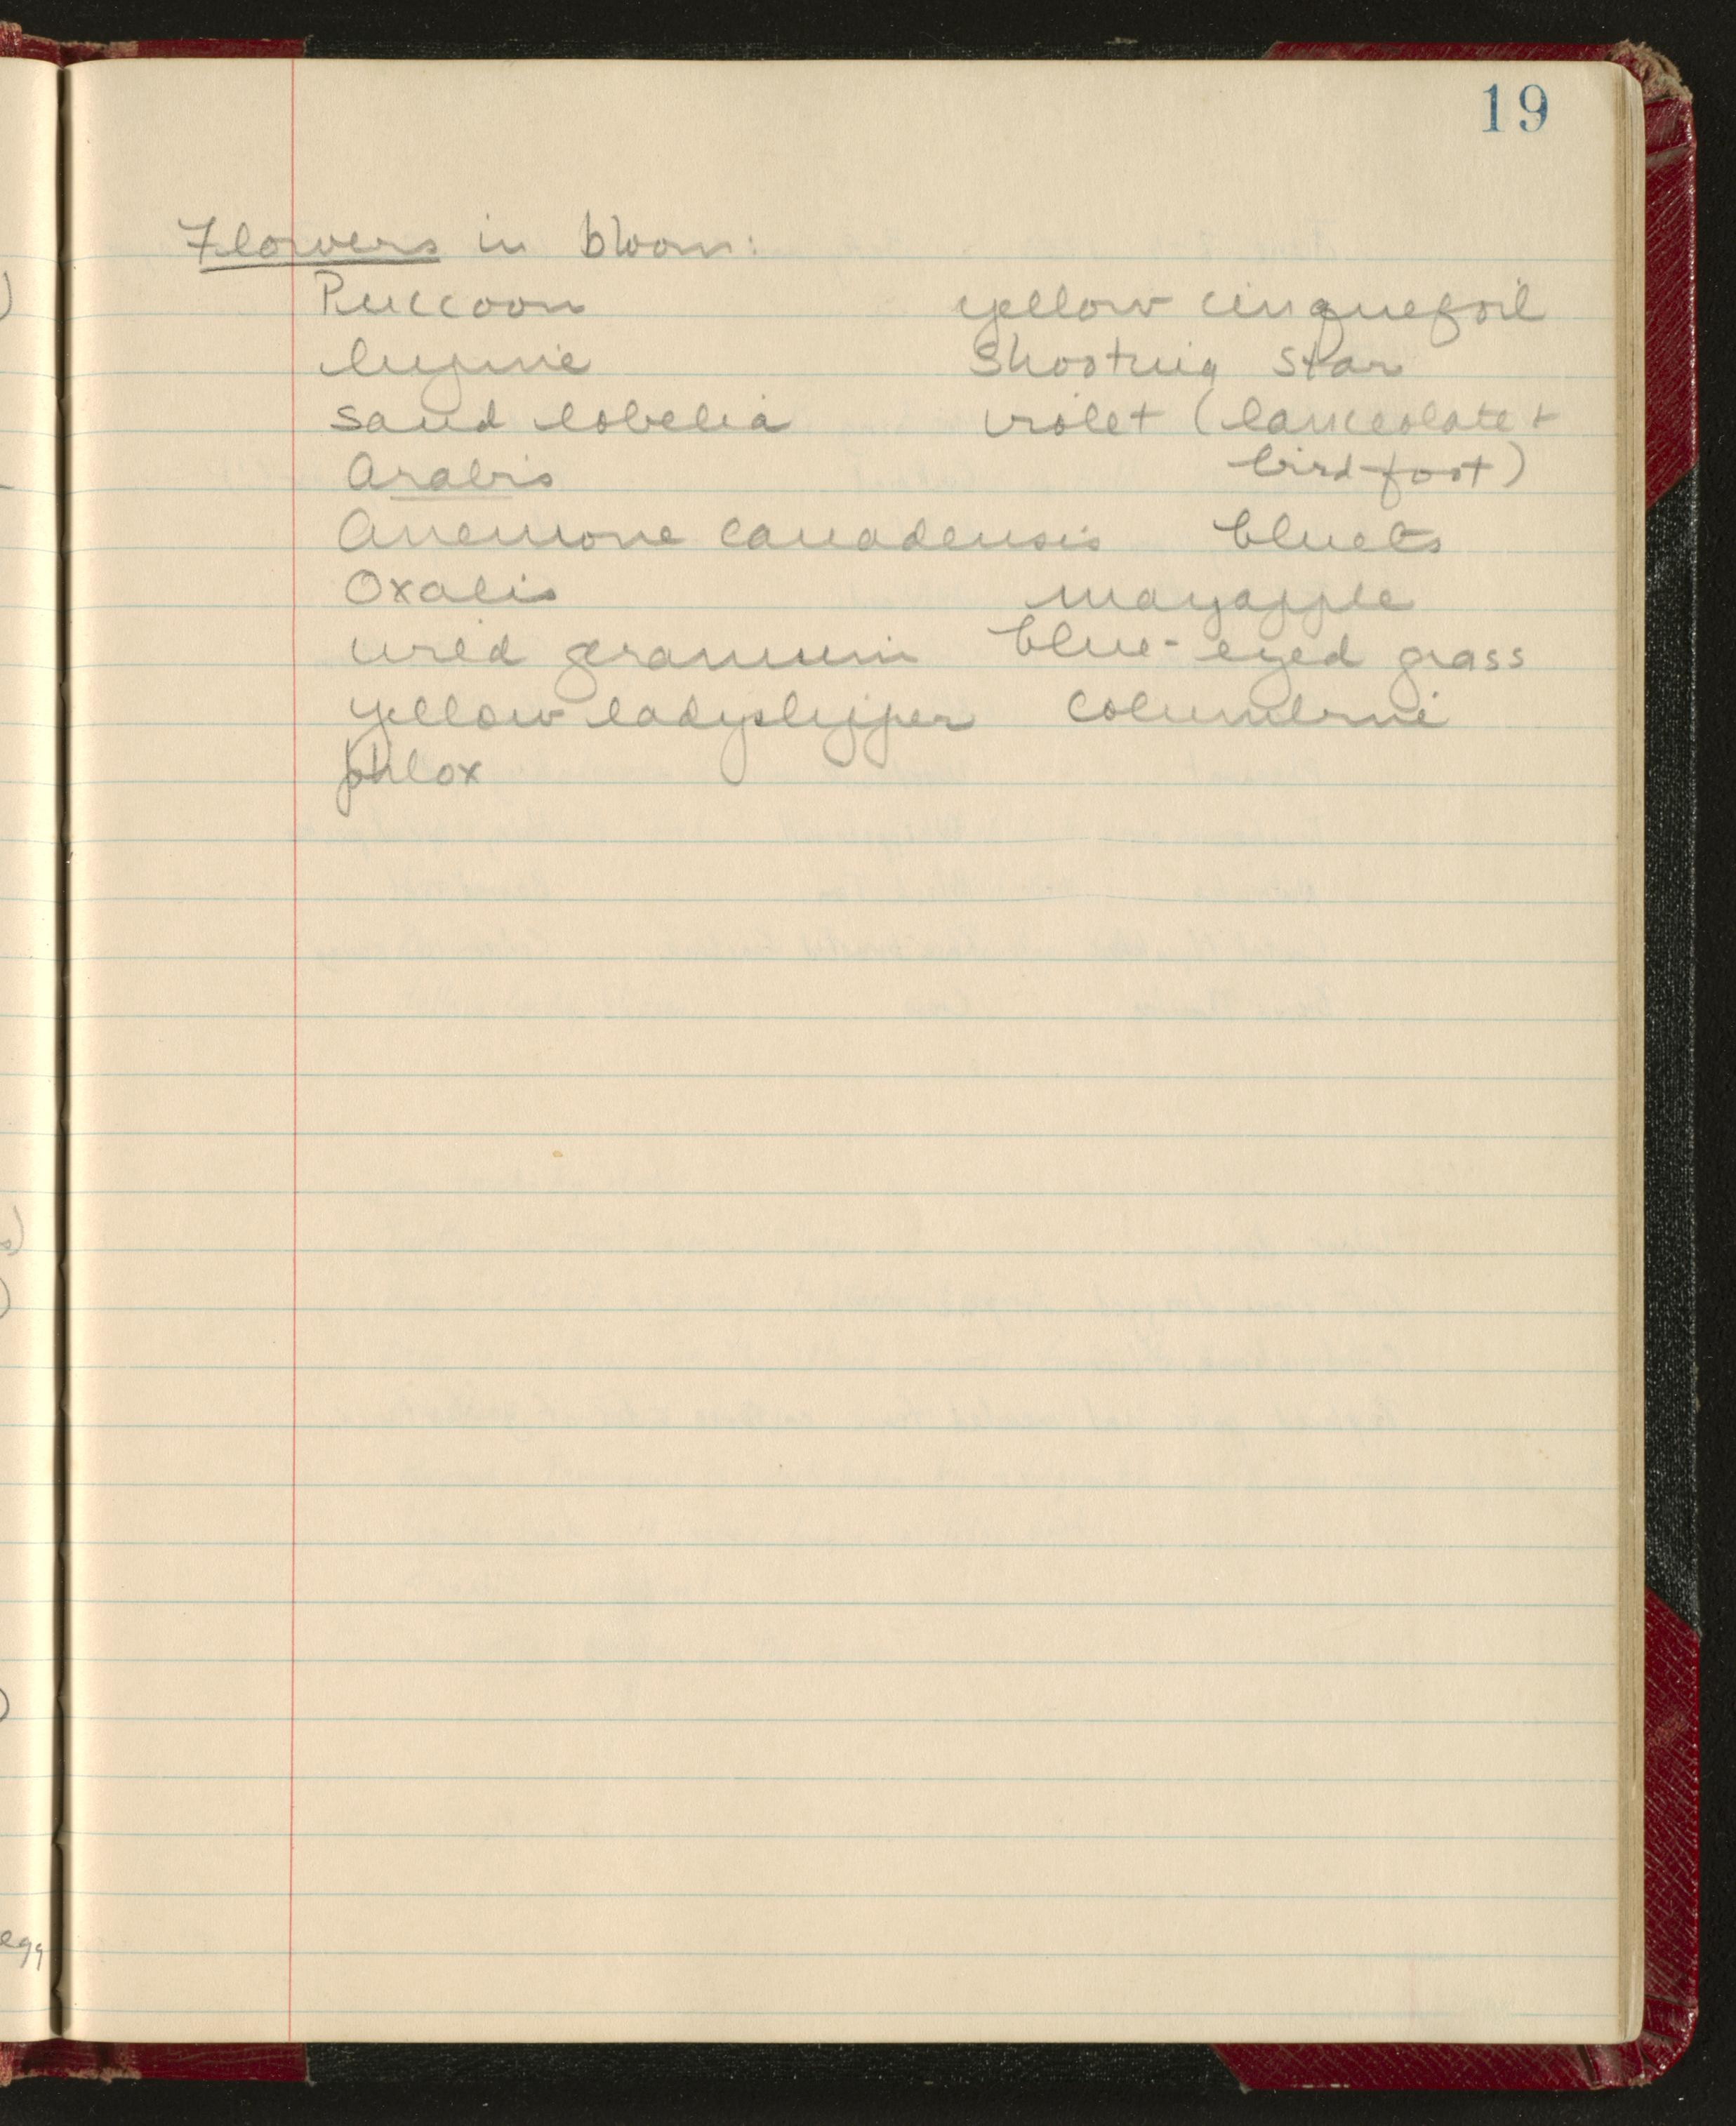 19
Flowers in bloom:
Puccoon yellow cinquefoil
lupine Shooting star
sand lobelia violet (lanceolate +
Arabis birdfoot)
Anemone canadensis bluets
Oxalis mayapple
wild geranium blue-eyed grass
yellow ladyslipper Columbine
phlox
egg